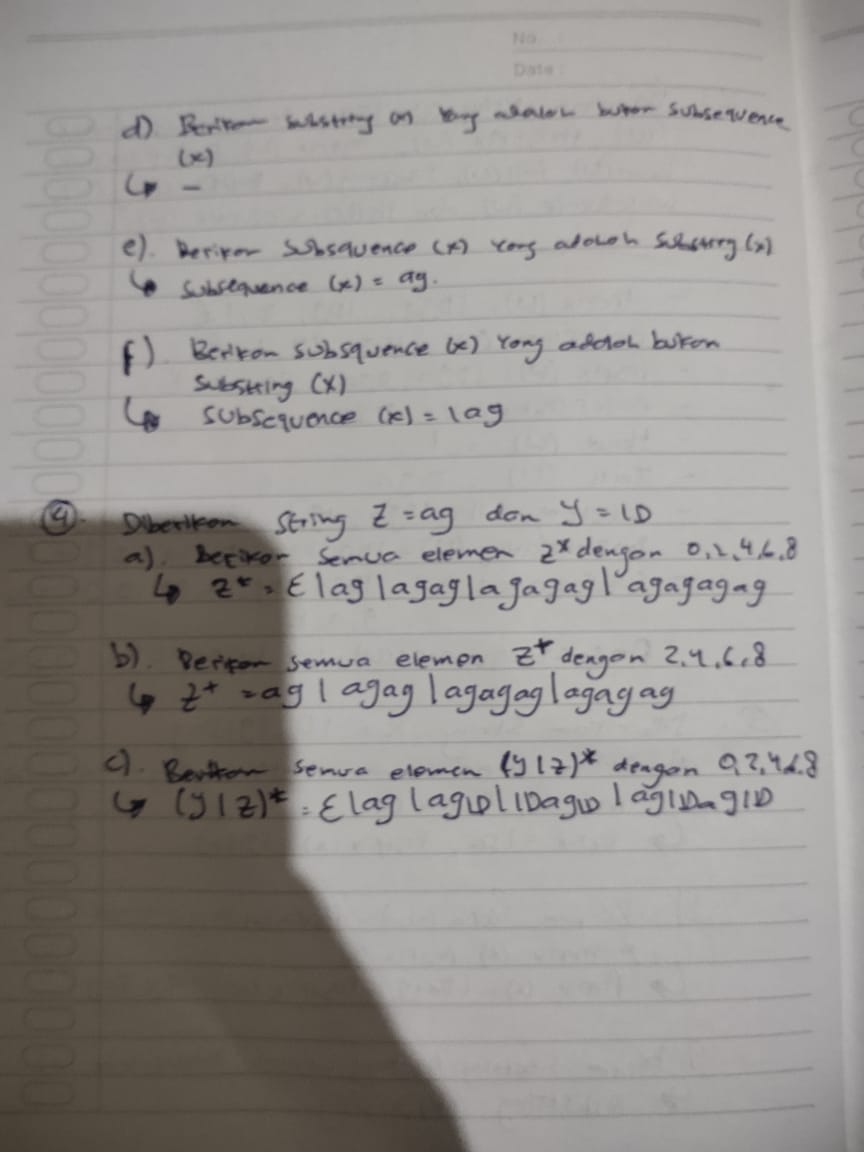 No :
Date :
d) Berikan substring (x) yang adalah bukan subsequence
(x)
↳ -
e). Berikan subsquence (x) yang adalah substring (x)
↳ subsequence (x) = ag.
f). Berikan subsquence (x) yang adalah bukan
substring (x)
↳ subsequence (x) = 1ag
4. Diberikan string Z = ag dan Y = 1D
a). Berikan semua elemen z* dengan 0,2,4,6,8
↳ z* = ε | ag | agag | agagag | agagagag
b). Berikan semua elemen z+ dengan 2,4,6,8
↳ z+ = ag | agag | agagag | agagag
c). Berikan semua elemen (y|z)* dengan 0,2,4,6,8
↳ (y|z)* = ε | ag | ag1D | 1Dag1D | ag1Dag1D